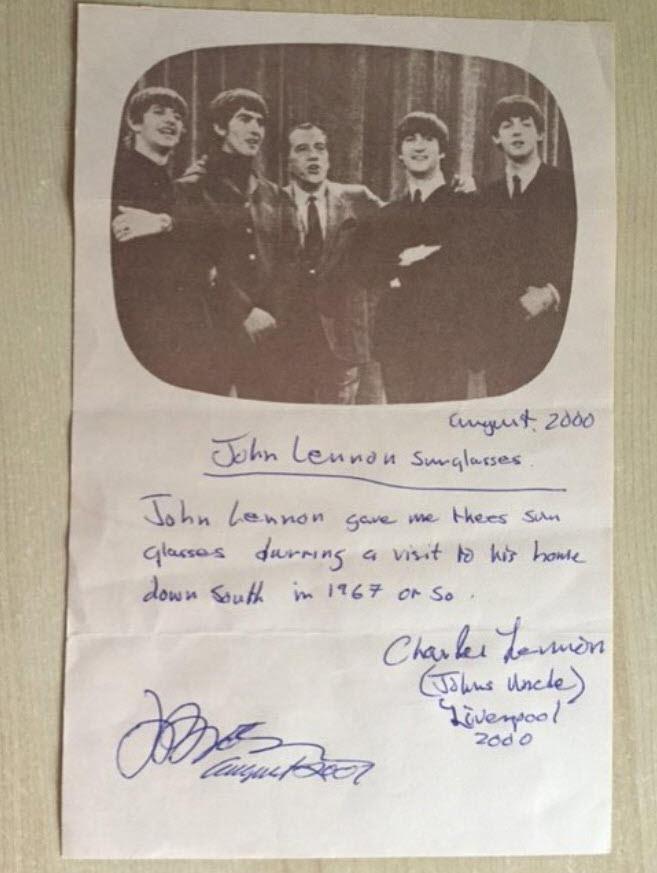 august. 2000
John Lennon Sunglasses.
John Lennon gave me thees sun
glasses durring a visit to his home
down South in 1967 or so.
Charles Lennon
(Johns Uncle)
Liverpool
2000
august 2001